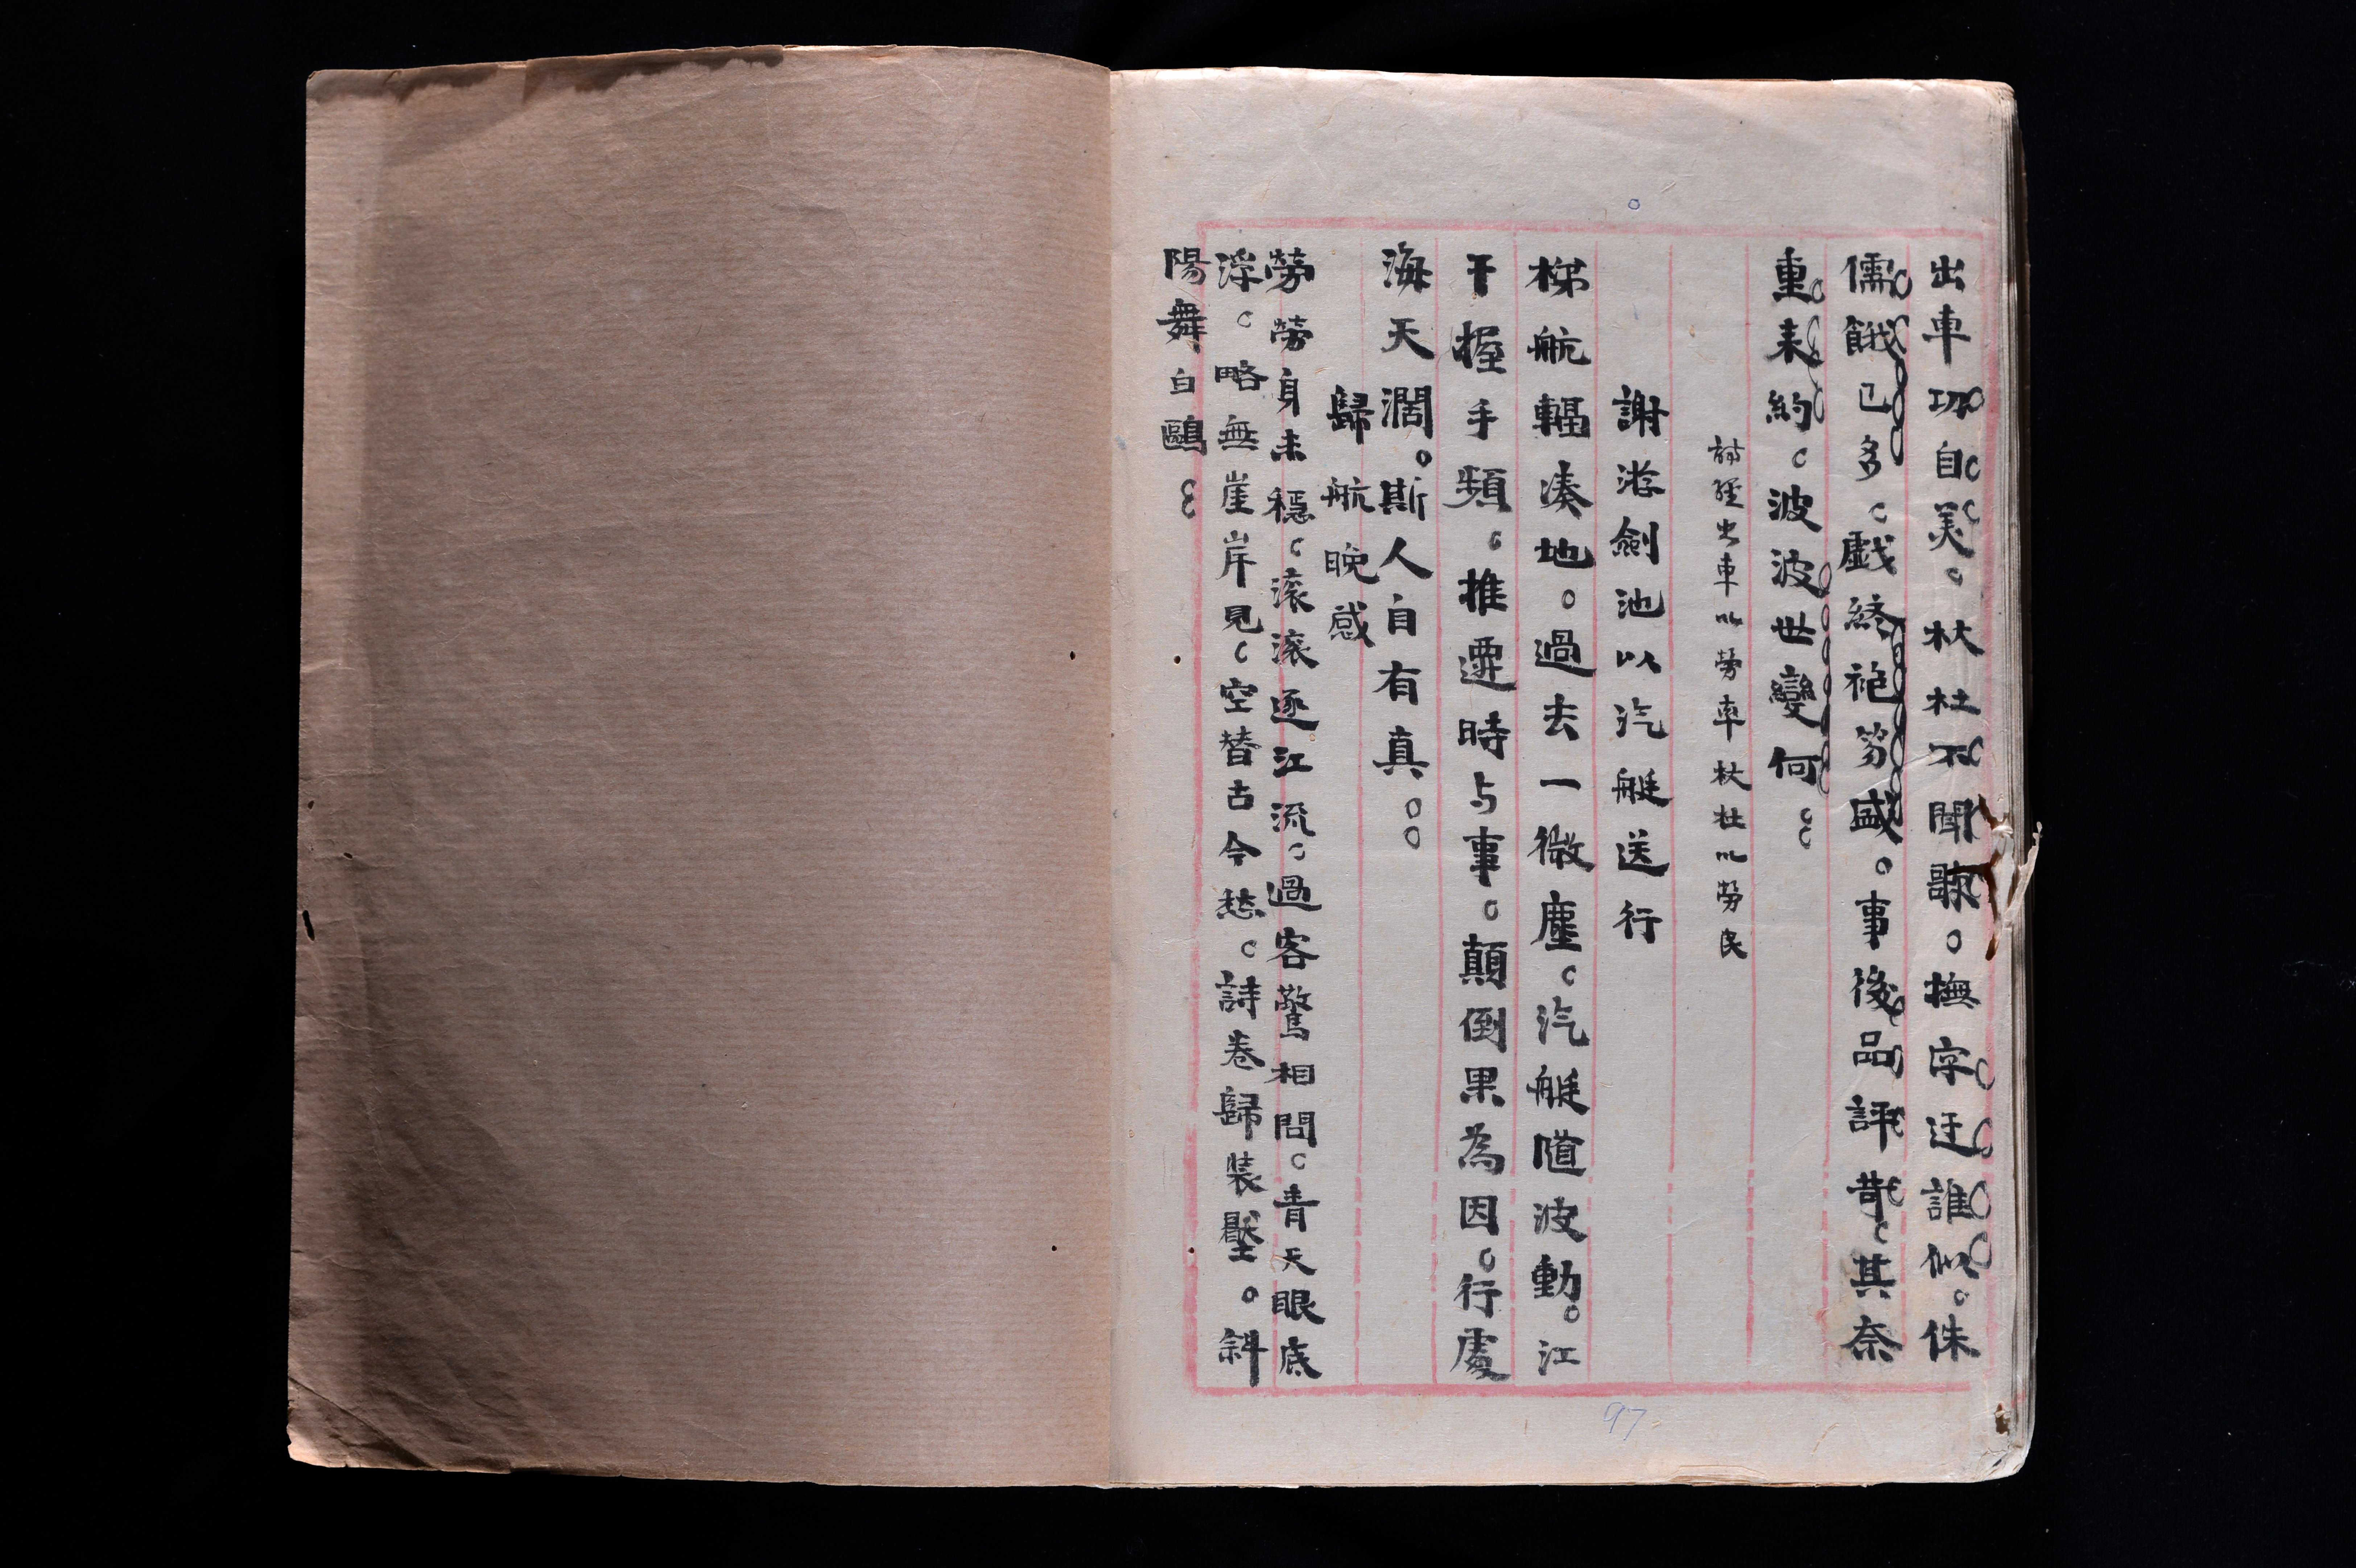 出車功自美。杕杜不聞歌。撫字迂誰似。侏
儒餓已多。戲終袍笏盛。事後品評苛。其奈
重来約。波波世變何。
詩經出車以勞率杕杜以勞民
謝游劍池以汽艇送行
梯航輻湊地。過去一微塵。汽艇隨波動。江
干握手頻。推遷時与事。顛倒果為因。行處
海天濶。斯人自有真。
歸航晚感
勞勞身未穩。滚滚逐江流。過客驚相問。青天眼底
浮。略無崖岸見。空替古今愁。詩卷歸装壓。斜
陽舞白鷗
97